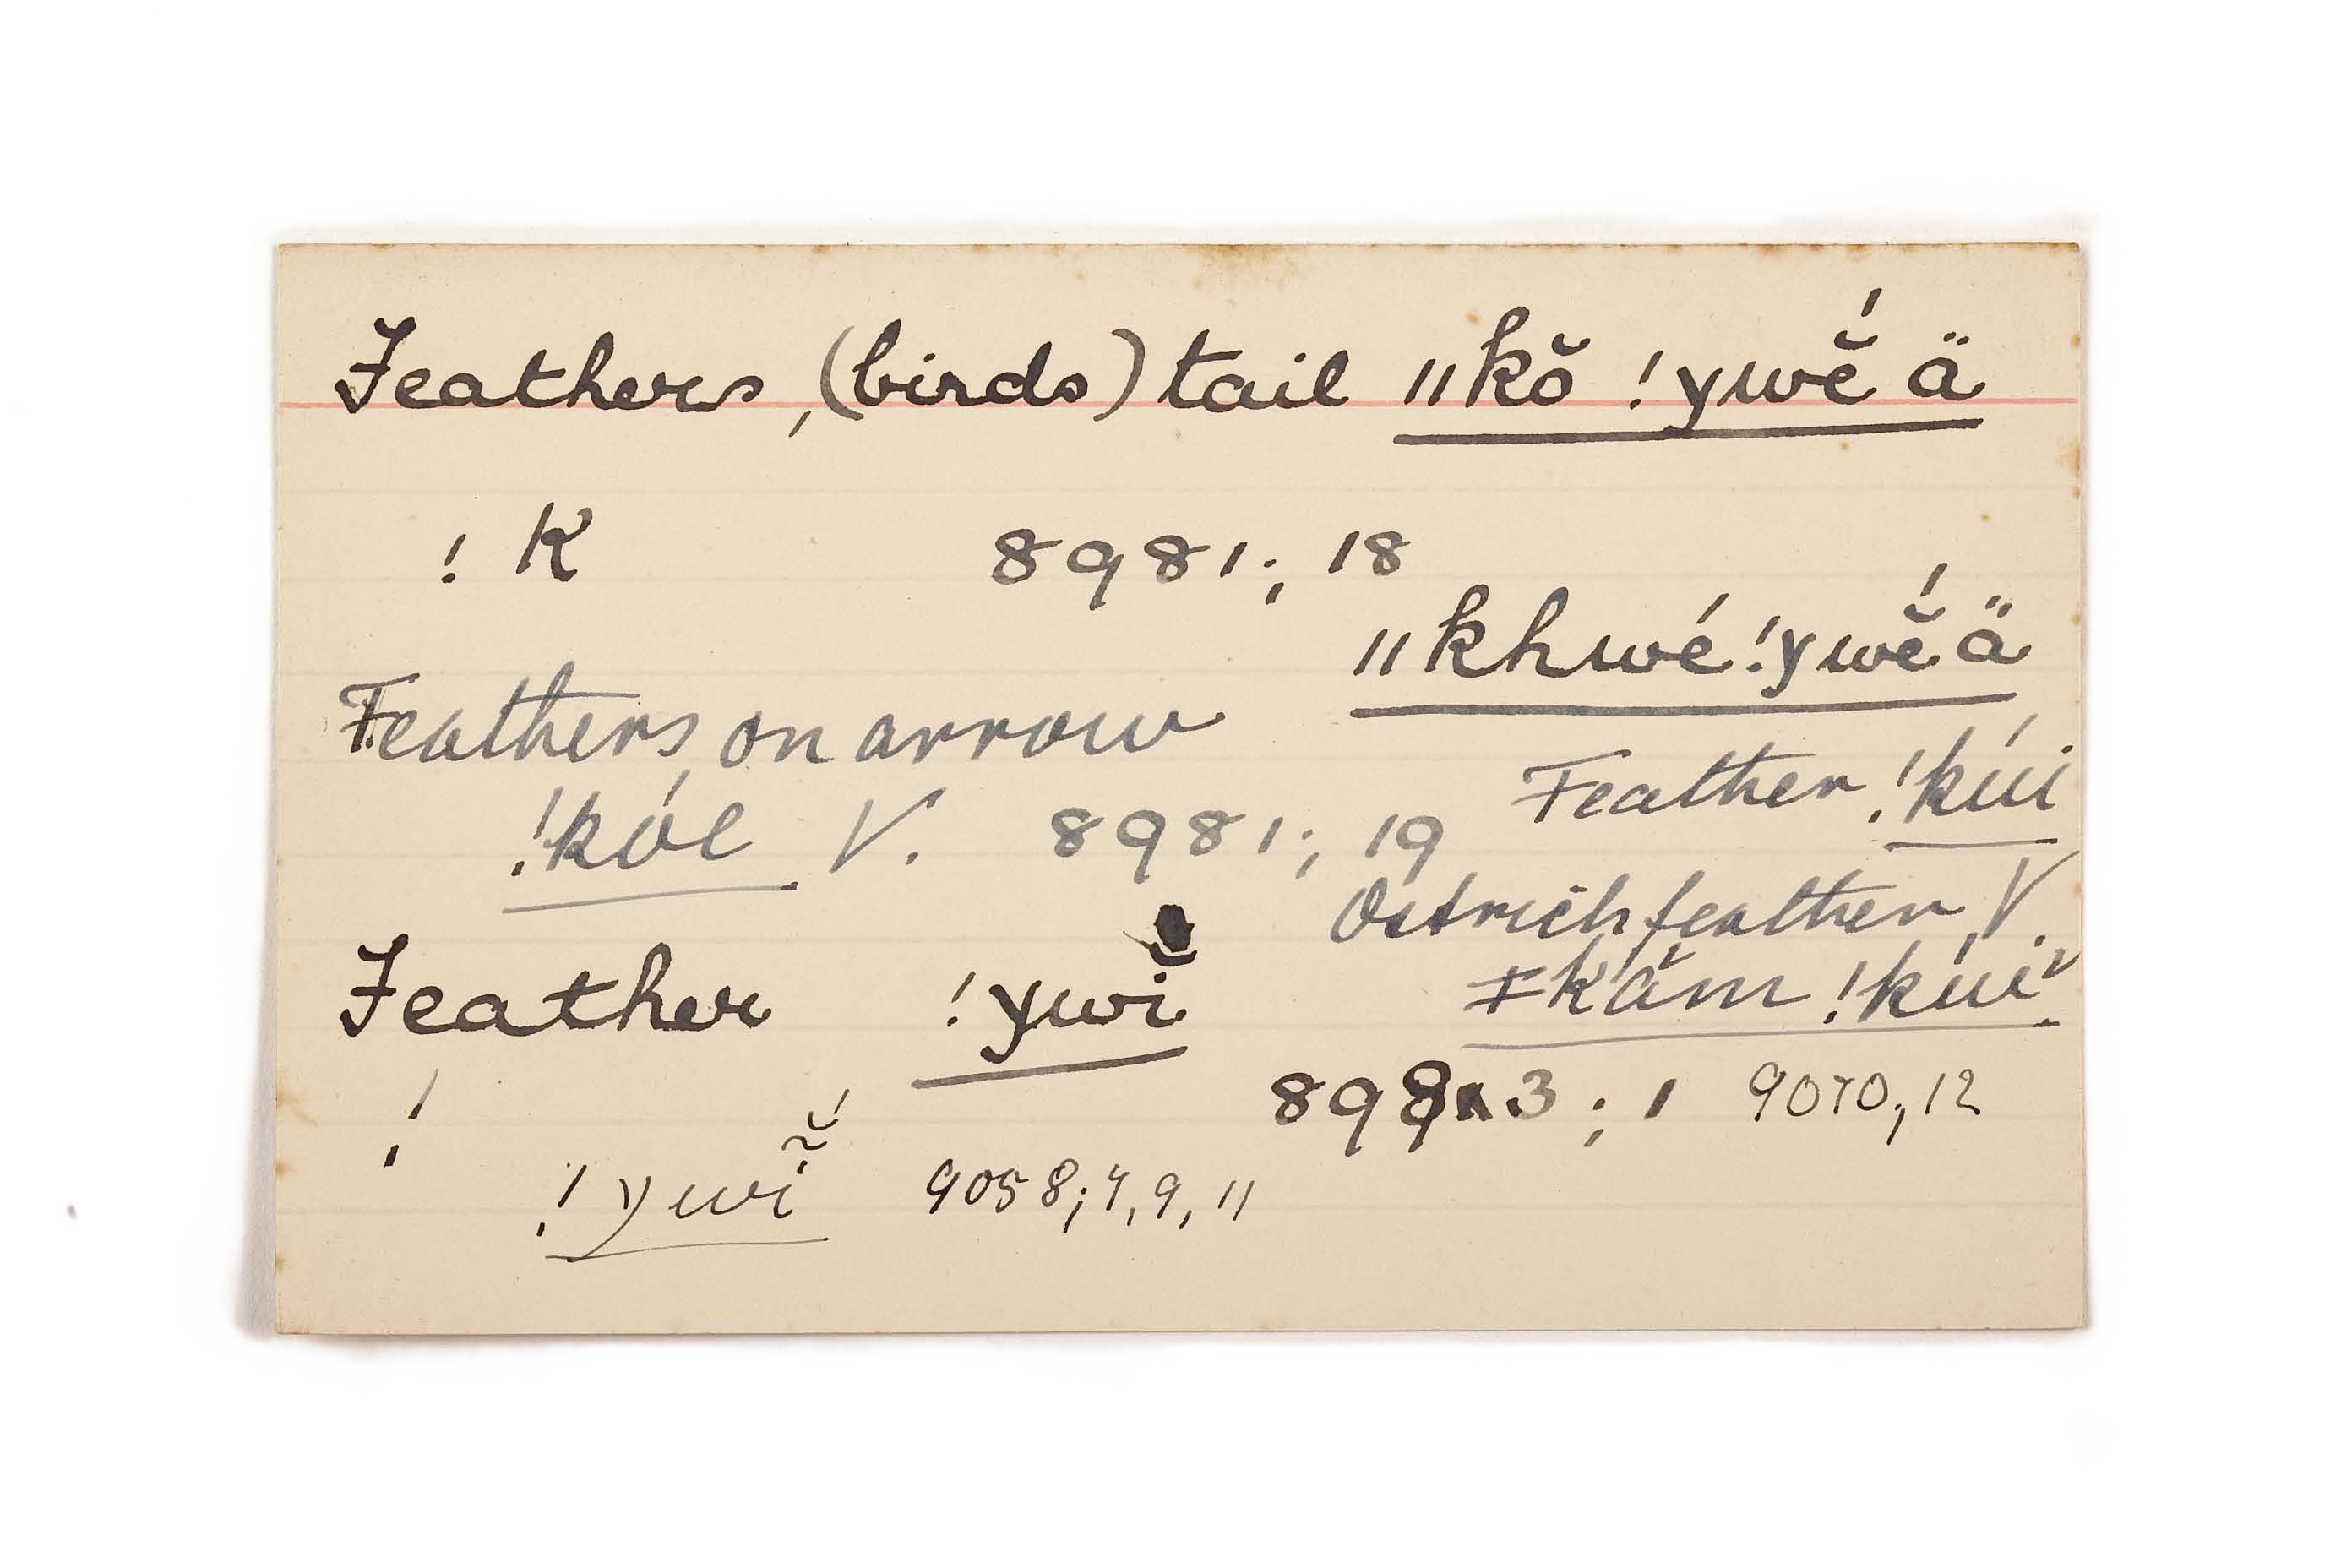 Feathers, (birds) tail ǁkŏ !ywĕ́ ä
! K 8981; 18
ǁkhwé !ywĕ́ ä
Feathers on arrow
!kóe V. 8981; 19
Feather !kúi
Ostrich feather V.
Feather !ywĭ
ǂkắm !kúi
8983; 1 9070; 12
!
!ywĭ̃́ 9058; 7, 9, 11